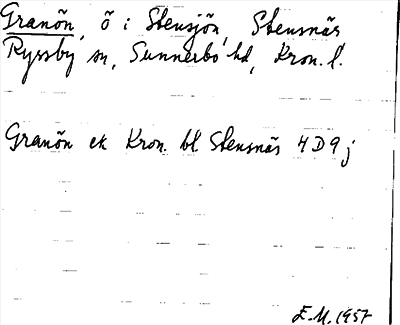 Granön, ö i Stensjön, Stensnäs
Ryssby sn, Sunnerbo hd, Kron. l.
Granön ek Kron. bl Stensnäs 4D9j
E.M. 1957